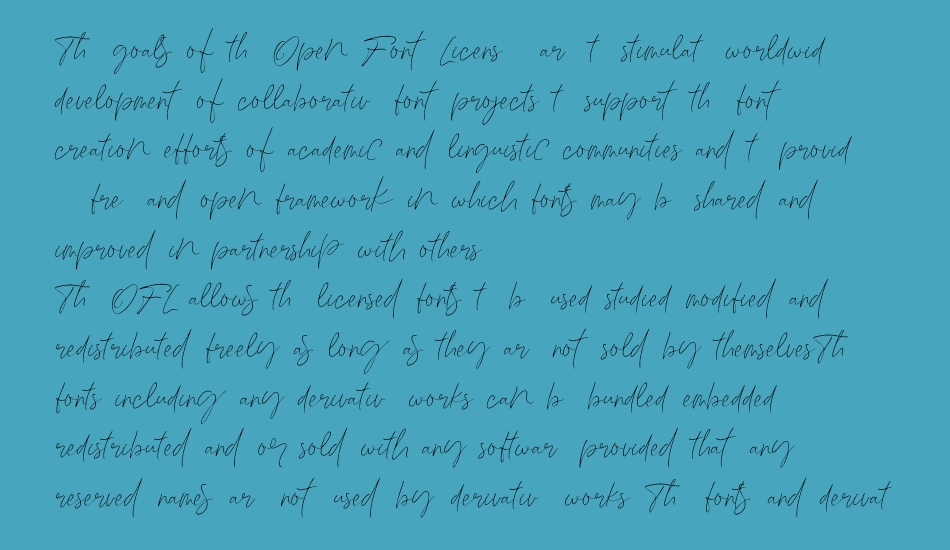 Th goals of th Open Font Licens ar t stimulat worldwid
development of collaborativ font projects t support th font
creation efforts of academic and linguistic communities and t provid
fre and open framework in which fonts may b shared and
improved in partnership with others
Th OFL allows th licensed fonts t b used studied modified and
redistributed freely as long as they ar not sold by themselvesTh
fonts including any derivativ works can b bundled embedded
redistributed and or sold with any softwar provided that any
reserved names ar not used by derivativ works Th fonts and derivat